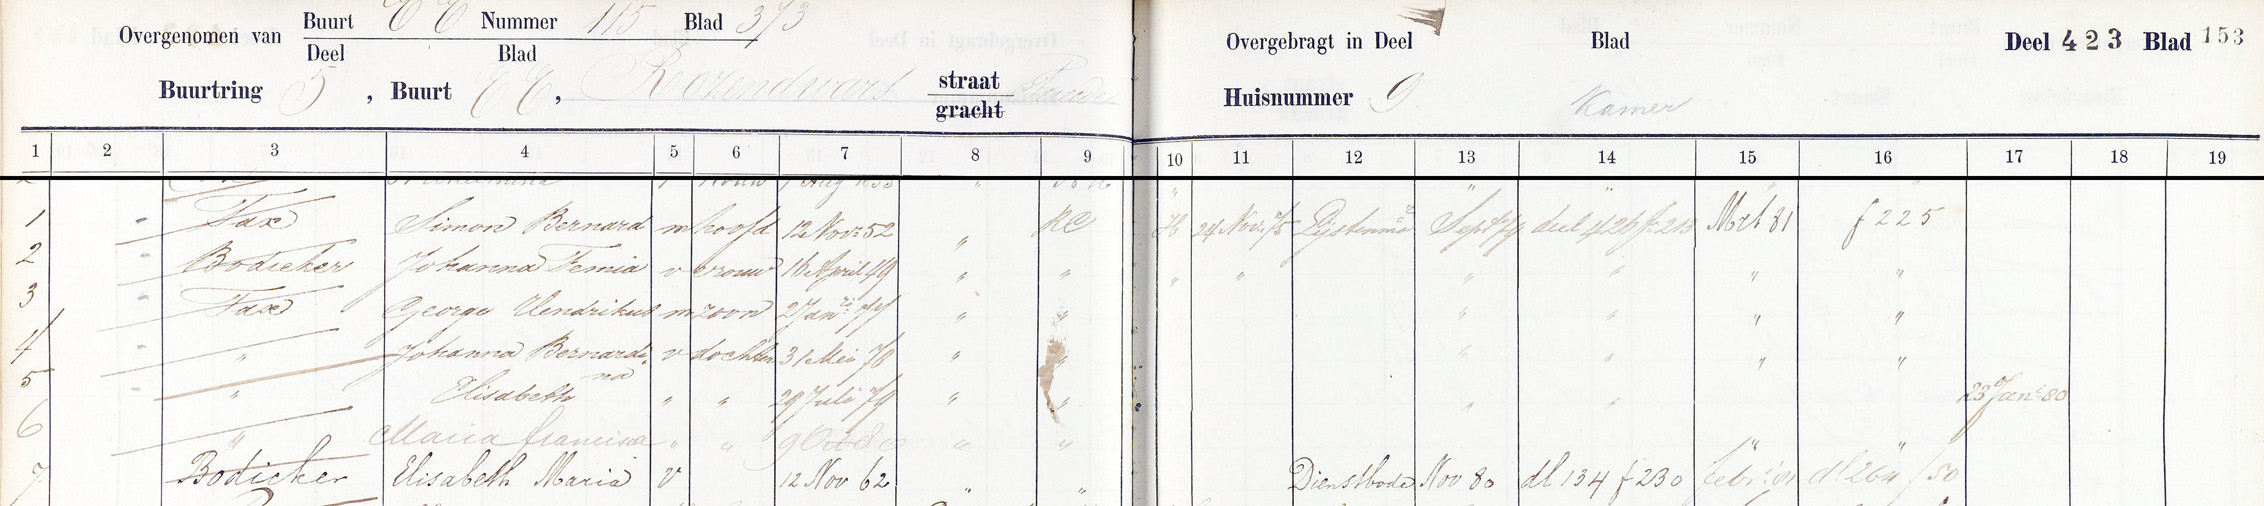 Overgenomen van Buurt EE Nummer 115 Blad 373
Deel Blad
Buurtring 5, Buurt EE, straat
gracht
Overgebragt in Deel Blad Deel 423 Blad 153
Huisnummer 9 Kamer
1 2 3 4 5 6 7 8 9 10 11 12 13 14 15 16 17 18 19
1 Fax Simon Bernard m hoofd 12 Nov: 52 " RC H 24 Nov: 75 Sept 79 deel 426 f 213 Mrt 81 f 225
2 Bödicker Johanna Femia v vrouw 16 April 49 " " " " " " " "
3 Fax George Hendrikus m zoon 2 Jan: 77 " " " " " "
4 " Johanna Bernardina v dochter 31 Mei 78 " " " " " "
5 " Elisabeth " " 29 Juli 79 " " " " 23 Jan: 80
6 " Maria Francisca " " 9 Oct 80 " " " "
7 Bödicker Elisabeth Maria v 12 Nov 62 " " Dienstbode Nov 80 dl 134 f 230 febr: 81 dl 264 f 50